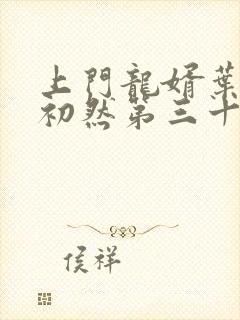 上門龍婿葉
初然第三十
侯祥